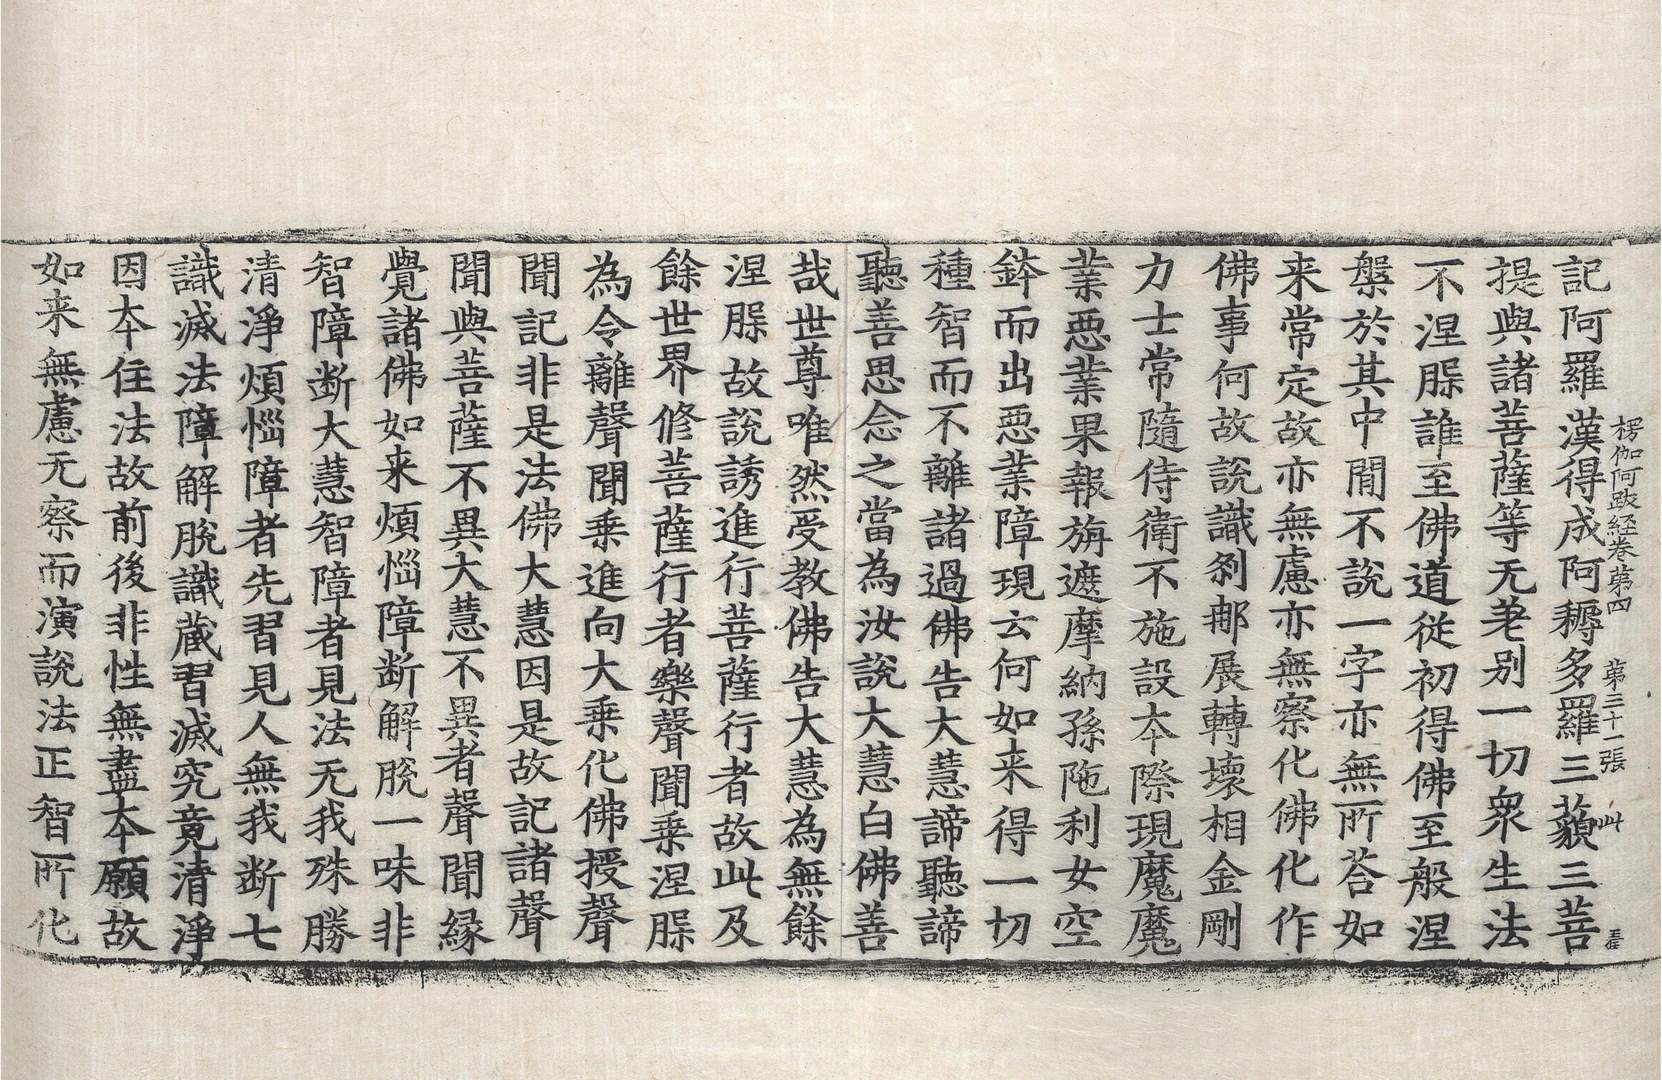 楞伽阿跋經卷第四　第三十一張　此
記阿羅漢得成阿耨多羅三藐三菩
提與諸菩薩等无差別一切衆生法
不涅槃誰至佛道從初得佛至般涅
槃於其中閒不說一字亦無所荅如
来常定故亦無慮亦無察化佛化作
佛事何故說識刹郍展轉壞相金剛
力士常隨侍衛不施設本際現魔魔
業惡業果報旃遮摩納孫陁利女空
鉢而出惡業障現云何如来得一切
種智而不離諸過佛告大慧諦聽諦
聽善思念之當為汝說大慧白佛善
哉世尊唯然受教佛告大慧為無餘
涅槃故說誘進行菩薩行者故此及
餘世界修菩薩行者樂聲聞乗涅槃
為令離聲聞乗進向大乗化佛授聲
聞記非是法佛大慧因是故記諸聲
聞與菩薩不異大慧不異者聲聞緣
覺諸佛如来煩惱障断解脫一味非
智障断大慧智障者見法无我殊勝
清淨煩惱障者先習見人無我断七
識滅法障解脫識藏習滅究竟清淨
因本住法故前後非性無盡本願故
如来無慮无察而演說法正智所化